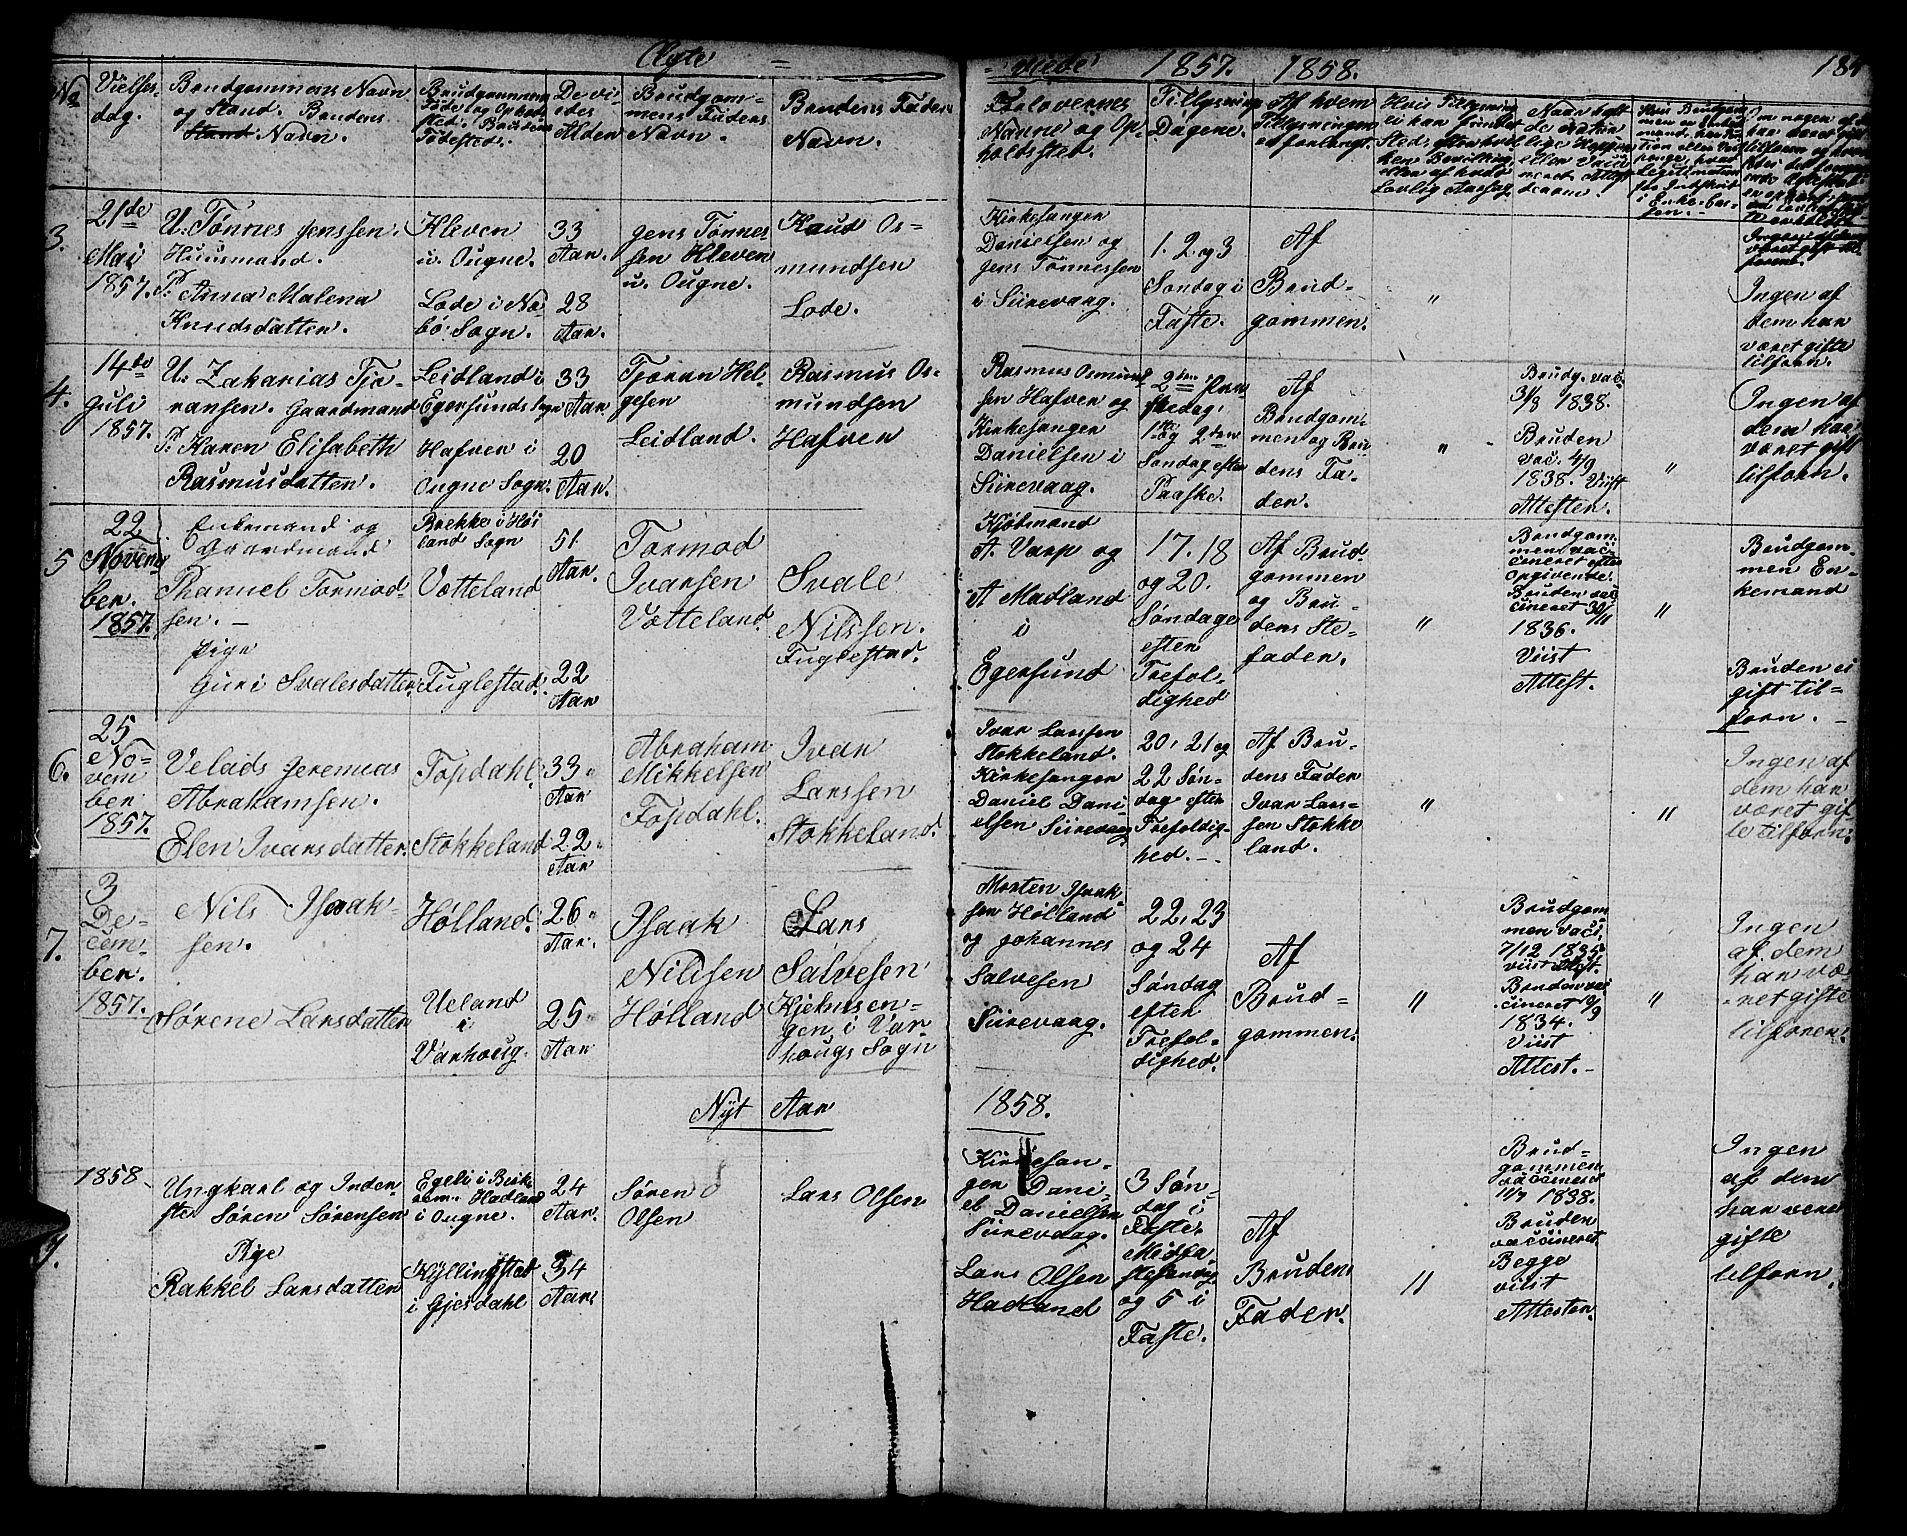 Ægte = = viede 1857. 1858.
No
Vielses-
dag.
Brudgommens Navn
og Stand. Brudens
Stand Navn.
Brudgommens
Føde og Opholds
sted. Brudens
Fødested.
De vi-
edes
Alder
Brudgom-
mens Faders
Navn.
Brudens Faders
Navn.
Forlovernes
Navne og Op-
holdssted.
Tillysnings
Dagene.
Af hvem
Tillysningen
er forlangt.
3.
21de
Mai
1857.
U. Tønnes Jenssen.
Huusmand.
P. Anna Malena
Knudsdatter.
Kleven
i Ougne.
Lode i Næ
bø Sogn.
33
Aar.
28
Aar.
Jens Tønnes-
sen Kleven
i Ougne.
Knud Os-
mundsen
Lode.
Kirkesanger
Danielsen og
Jens Tønnessen
i Siirevaag.
1. 2 og 3
Søndag i
Faste.
Af
Brud-
gommen.
"
Ingen af
dem har
været gifte
tilforn.
4.
14de
Juli
1857.
U. Zakarias Tjø-
ransen. Gaardmand
P. Karen Elisabeth
Rasmusdatter.
Leidland i
Egersunds Sogn
Hafven i
Ougne Sogn.
33
Aar
20
Aar.
Tjøran Hel-
gesen
Leidland.
Rasmus Os-
mundsen
Hafven
Rasmus Osmund
sen Hafven og
Kirkesanger
Danielsen i
Siirevaag.
1ste og 2den
Søndag efter
Paaske.
Af
Brudgom-
men og Bru
dens Fa-
der.
"
Brudg. vac.
31/8 1838.
Bruden
vac. 4/9
1838. Viist
Attester.
"
Ingen af
dem har
været gift
tilforn.
5
22
Novem
ber.
1857.
Enkemand og
Gaardmand
Thanuel Tormod-
sen. —
Pige
Guri Svalesdatter
Brekke i Høi
land Sogn
Vøtteland
Fuglestad.
51
Aar.
22
Aar
Tormod
Ivarsen
Vøtteland.
Svale
Nilssen.
Fuglestad.
Kjøbmand
A. Varp og
A Madland
i
Egersund
17. 18
og 20.
Søndage
efter
Trefol-
dighed
Af Brud
gommen
og Bru-
dens Ste-
fader.
"
Brudgom
men vac-
cineret efter
Opgivende.
Bruden vac
cineret 30/11
1836.
Viist
Attest.
"
Brudgom-
men En-
kemand
Bruden ei
gift til-
forn. —
6.
25
No-
vem
ber
1857.
Velads Jeremias
Abrahamsen.
Elen Ivarsdatter.
Topdahl
Stokkeland
33
Aar
22
Aar
Abraham
Mikkelsen
Topdahl.
Ivar
Larssen
Stokkeland.
Ivar Larssen
Stokkeland.
Kirkesanger
Daniel Dani-
elsen Siirevaag
20, 21 og
22 Søn-
dag efter
Trefoldig-
hed. —
Af Bru-
dens Fader
Ivar Lars-
sen Stokke
land.
"
"
Ingen af
dem har
været gif
te tilforn.
7.
3
De-
cem-
ber.
1857.
Nils Isaak-
sen.
Sørene Larsdatter
Hølland.
Ueland
i
Varhoug.
26
Aar.
25
Aar
Isaak
Nilssen
Hølland
Lars
Salvesen
Kjeknsen-
gen i Var
hougs Sogn
Morten Isaak
sen Hølland
og Johannes
Salvesen
Siirevaag.
22, 23
og 24
Søndag
efter
Trefol-
dighed.
Af
Brud-
gommen.
"
Brudgom
men vacc.
7/12 1835.
viist Attest.
Bruden vac
cineret 19/9
1834.
Viist
Attest. —
"
Ingen
af dem
har væ-
ret gifte
tilforn.
Nyt Aar 1858.
1858
Ungkarl og Inder-
ste Søren Sørensen
Pige
Rakkel Larsdatter
Egeli i Birk
rem. Hadland
i Ougne.
Kyllingstad
i Gjesdahl
24
Aar.
34
Aar
Søren
Olsen
Lars Olsen
Kirkesan-
ger Dani-
el Danielsen
Siirevaag.
Lars Olsen
Hadland
3 Søn-
dag i
Faste
Midfa
stesøndag
og 5 i
Faste.
Af
Brudens
Fader.
"
Brud-
gommen
vaccineret
11/7 1838.
Bruden
vaccineret
Begge
viist
Attester.
Ingen
af dem
har været
gifte
tilforn.